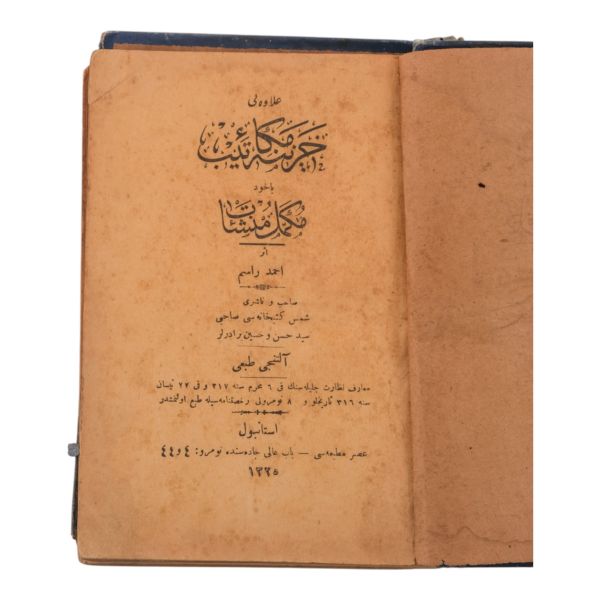 علاوه لی
خزینه مکاتیب
یاخود
مکمل منشئات
اثر
احمد راسم
صاحب و ناشری
شمس کتبخانه سی صاحبی
سید حسن و حسین برادرلر
آلتنجی طبعی
معارف نظارت جلیله سنك فی ٦ محرم سنه ٣١٧ و فی ٢٢ نیسان
سنه ٣١٦ تاریخلو و ٨ نومرولی رخصتنامه سیله طبع اولنمشدر
استانبول
عصر مطبعه سی — باب عالی جاده سنده نومرو: ٤ و ٤٤
١٣٣٥